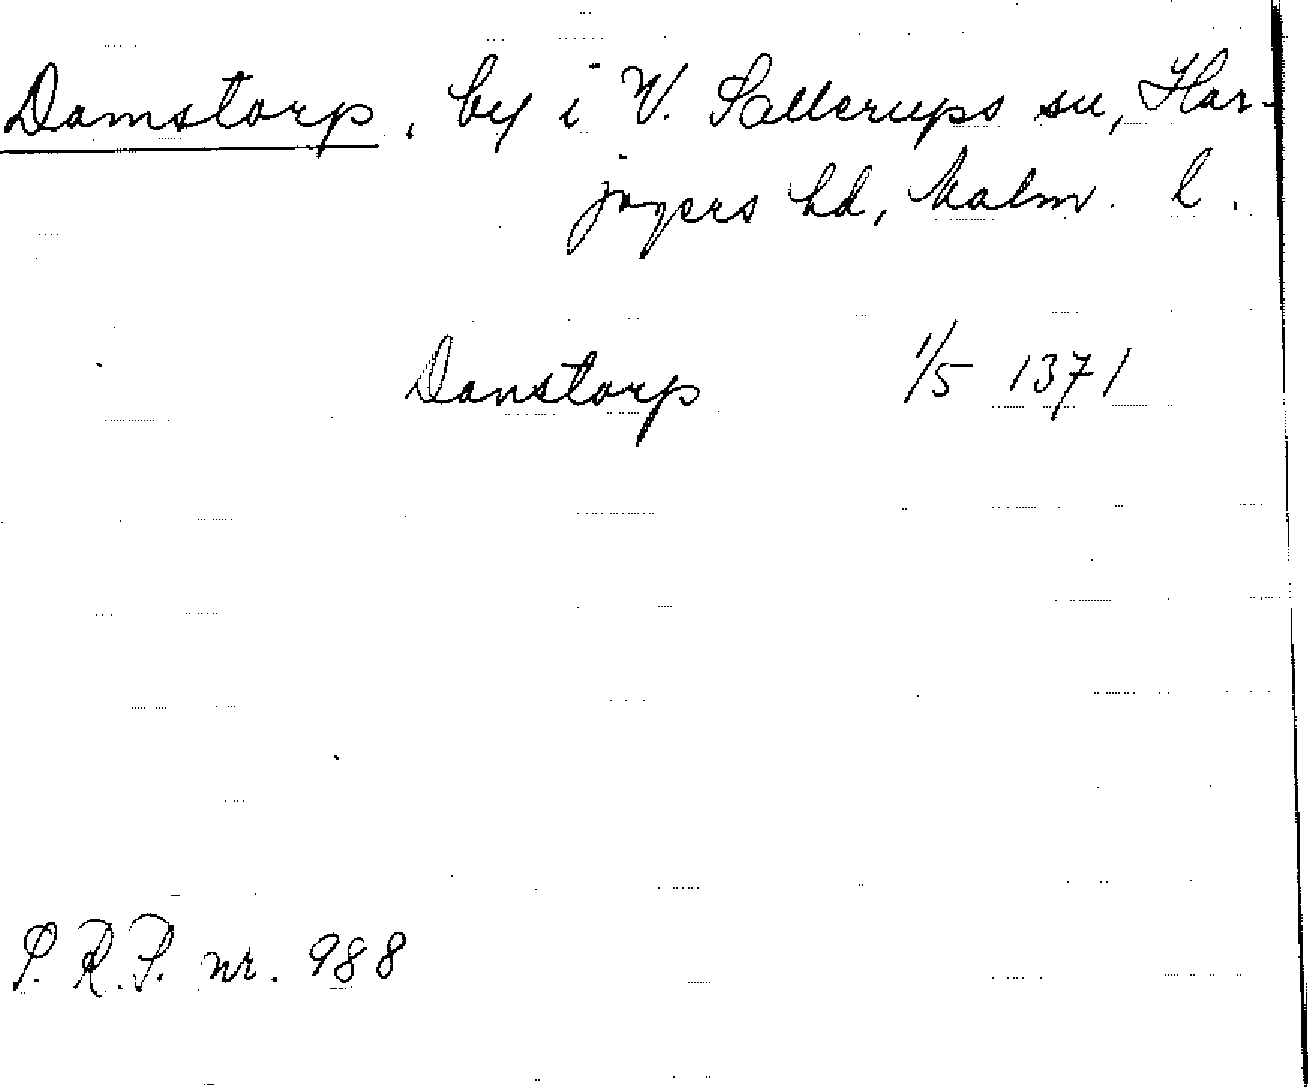 Damstorp, by i V. Sallerups sn, Har-
jagers hd, Malm. l.
Danstorp 1/5 1371
P.R.P. nr. 988